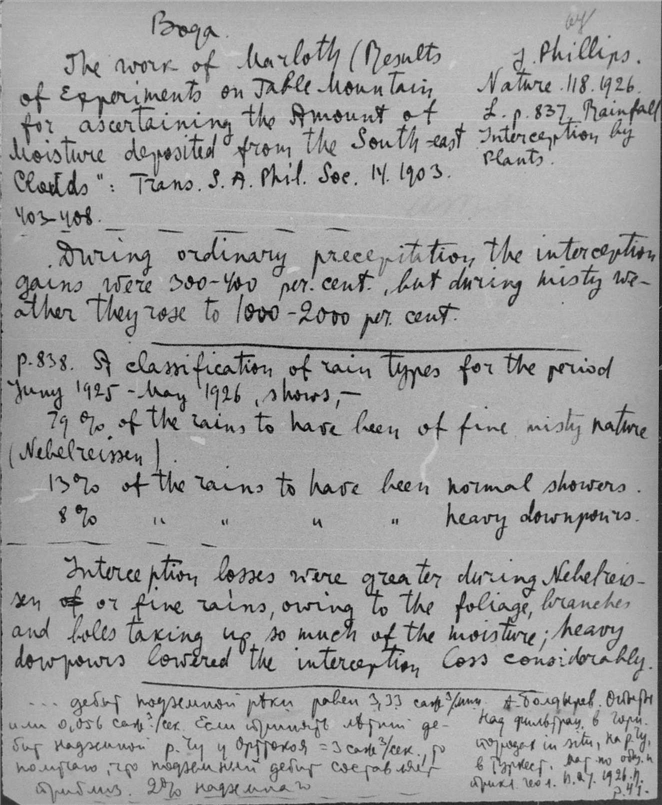 Вода.
The work of Marloth (Results
of Experiments on Table Mountain
for ascertaining the Amount of
Moisture deposited from the South-east
Clouds": Trans. S. A. Phil. Soc. 14. 1903.
403-408.
J. Phillips.
Nature. 118. 1926.
L. p. 837, Rainfall
Interception by
Plants.
During ordinary precepitation, the interception
gains were 300-400 per. cent., but during misty we-
ather they rose to 1000-2000 per. cent.
p. 838. A classification of rain types for the period
Juny 1925 - May 1926, shows, -
79 % of the rains to have been of fine misty nature
(Nebelreissen).
13% of the rains to have been normal showers.
8% " " " " heavy downpours.
Interception losses were greater during Nebelreis-
sen or fine rains, owing to the foliage, branches
and boles taking up so much of the moisture; heavy
dowpours lowered the interception loss considorably.
... дебит подземной реки равен 3,33 саж³/мин.
или 0,056 саж³/сек. Если принять летний де-
бит надземной р. Чу у Ортокоя = 3 саж³/сек, то
получаю, что подземный дебит составляет
приблиз. 2% надземнаго
А. Болдырев.
над фильтрац. в гори.
породах in situ, на р. Чу,
в Туркест.
1926.
p. 45.